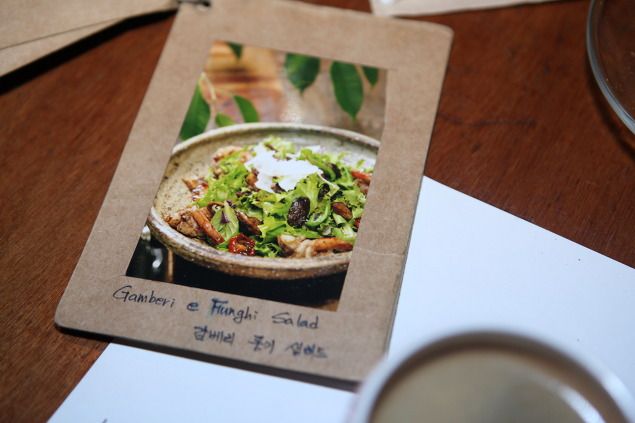 Gamberi e Funghi Salad
감베리 풍기 샐러드